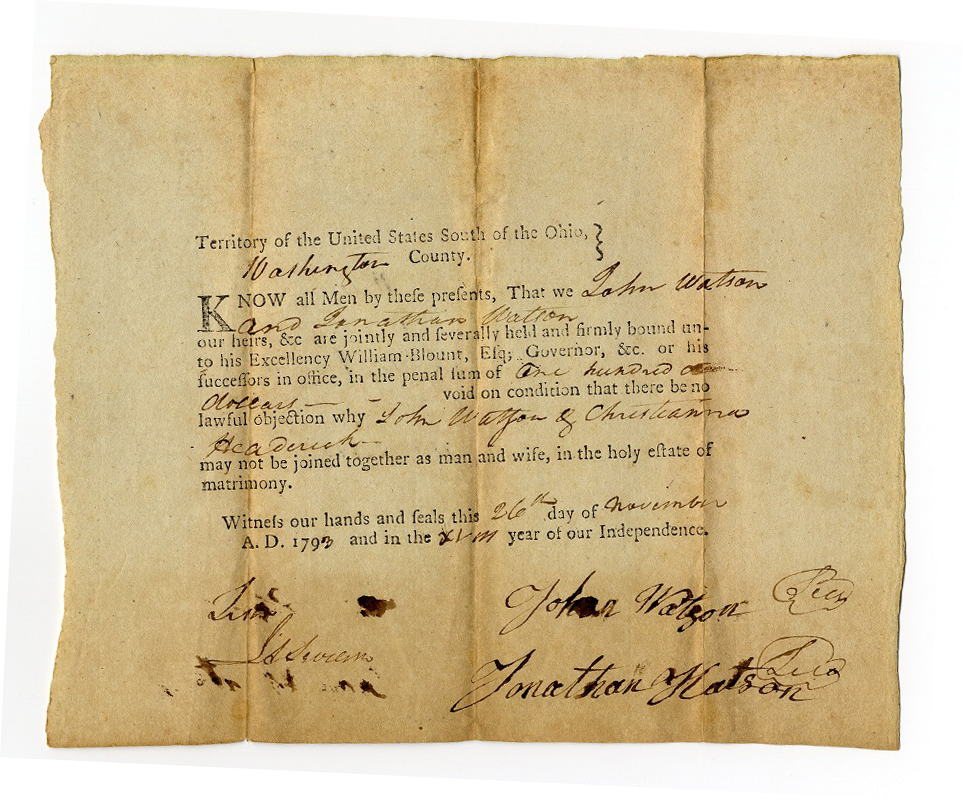 Territory of the United States South of the Ohio, }
Washington County.
KNOW all Men by theſe preſents, That we John Watson
and Jonathan Watson
our heirs, &c are jointly and ſeverally held and firmly bound un-
to his Excellency William Blount, Eſq; Governor, &c. or his
ſucceſſors in office, in the penal ſum of One hundred
dollars void on condition that there be no
lawful objection why John Watson & Christianna
Headerick
may not be joined together as man and wife, in the holy eſtate of
matrimony.
Witneſs our hands and ſeals this 26th day of November
A. D. 1793 and in the XVIII year of our Independence.
John Watson Seal
Js Sevier
Jonathan Watson Seal